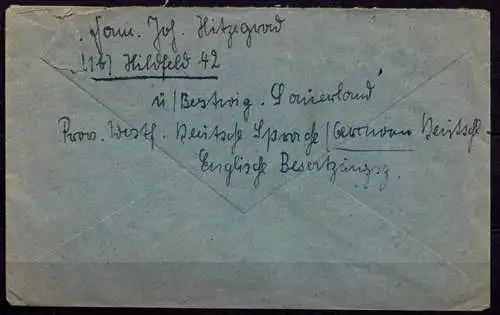 Fam. Joh. Hitzegrad
(21b) Hildfeld 42
ü/Bestwig. Sauerland
Prov. Westf. Deutsche Sprache/German Deutsch-
Englische Besetzungz.